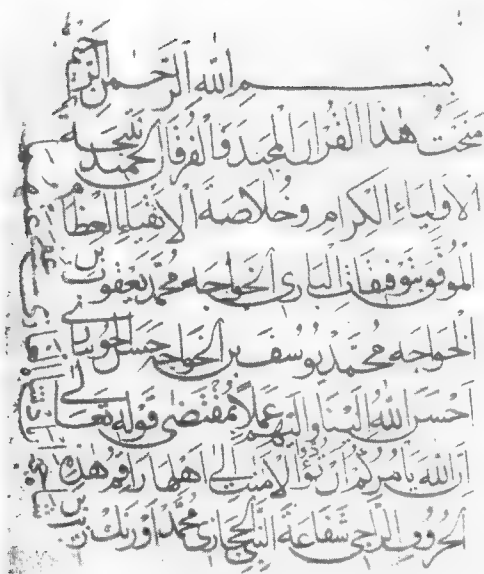 بسم الله الرحمن الرحيم
منحت هذا القران المجيد والفرقان الحميد نتيجة
الاولياء الكرام وخلاصة الاتقياء العظام
الموفق بتوفيقات الباري الخواجه محمد يعقوب بن
الخواجه محمد يوسف بن الخواجه حسن الجويباري
احسن الله الينا واليهم عملا بمقتضى قوله تعالى
ان الله يامركم ان تؤدوا الامانات الى اهلها راقم هذه
الحروف الراجي شفاعة النبي الحجازي محمد اورنك زيب